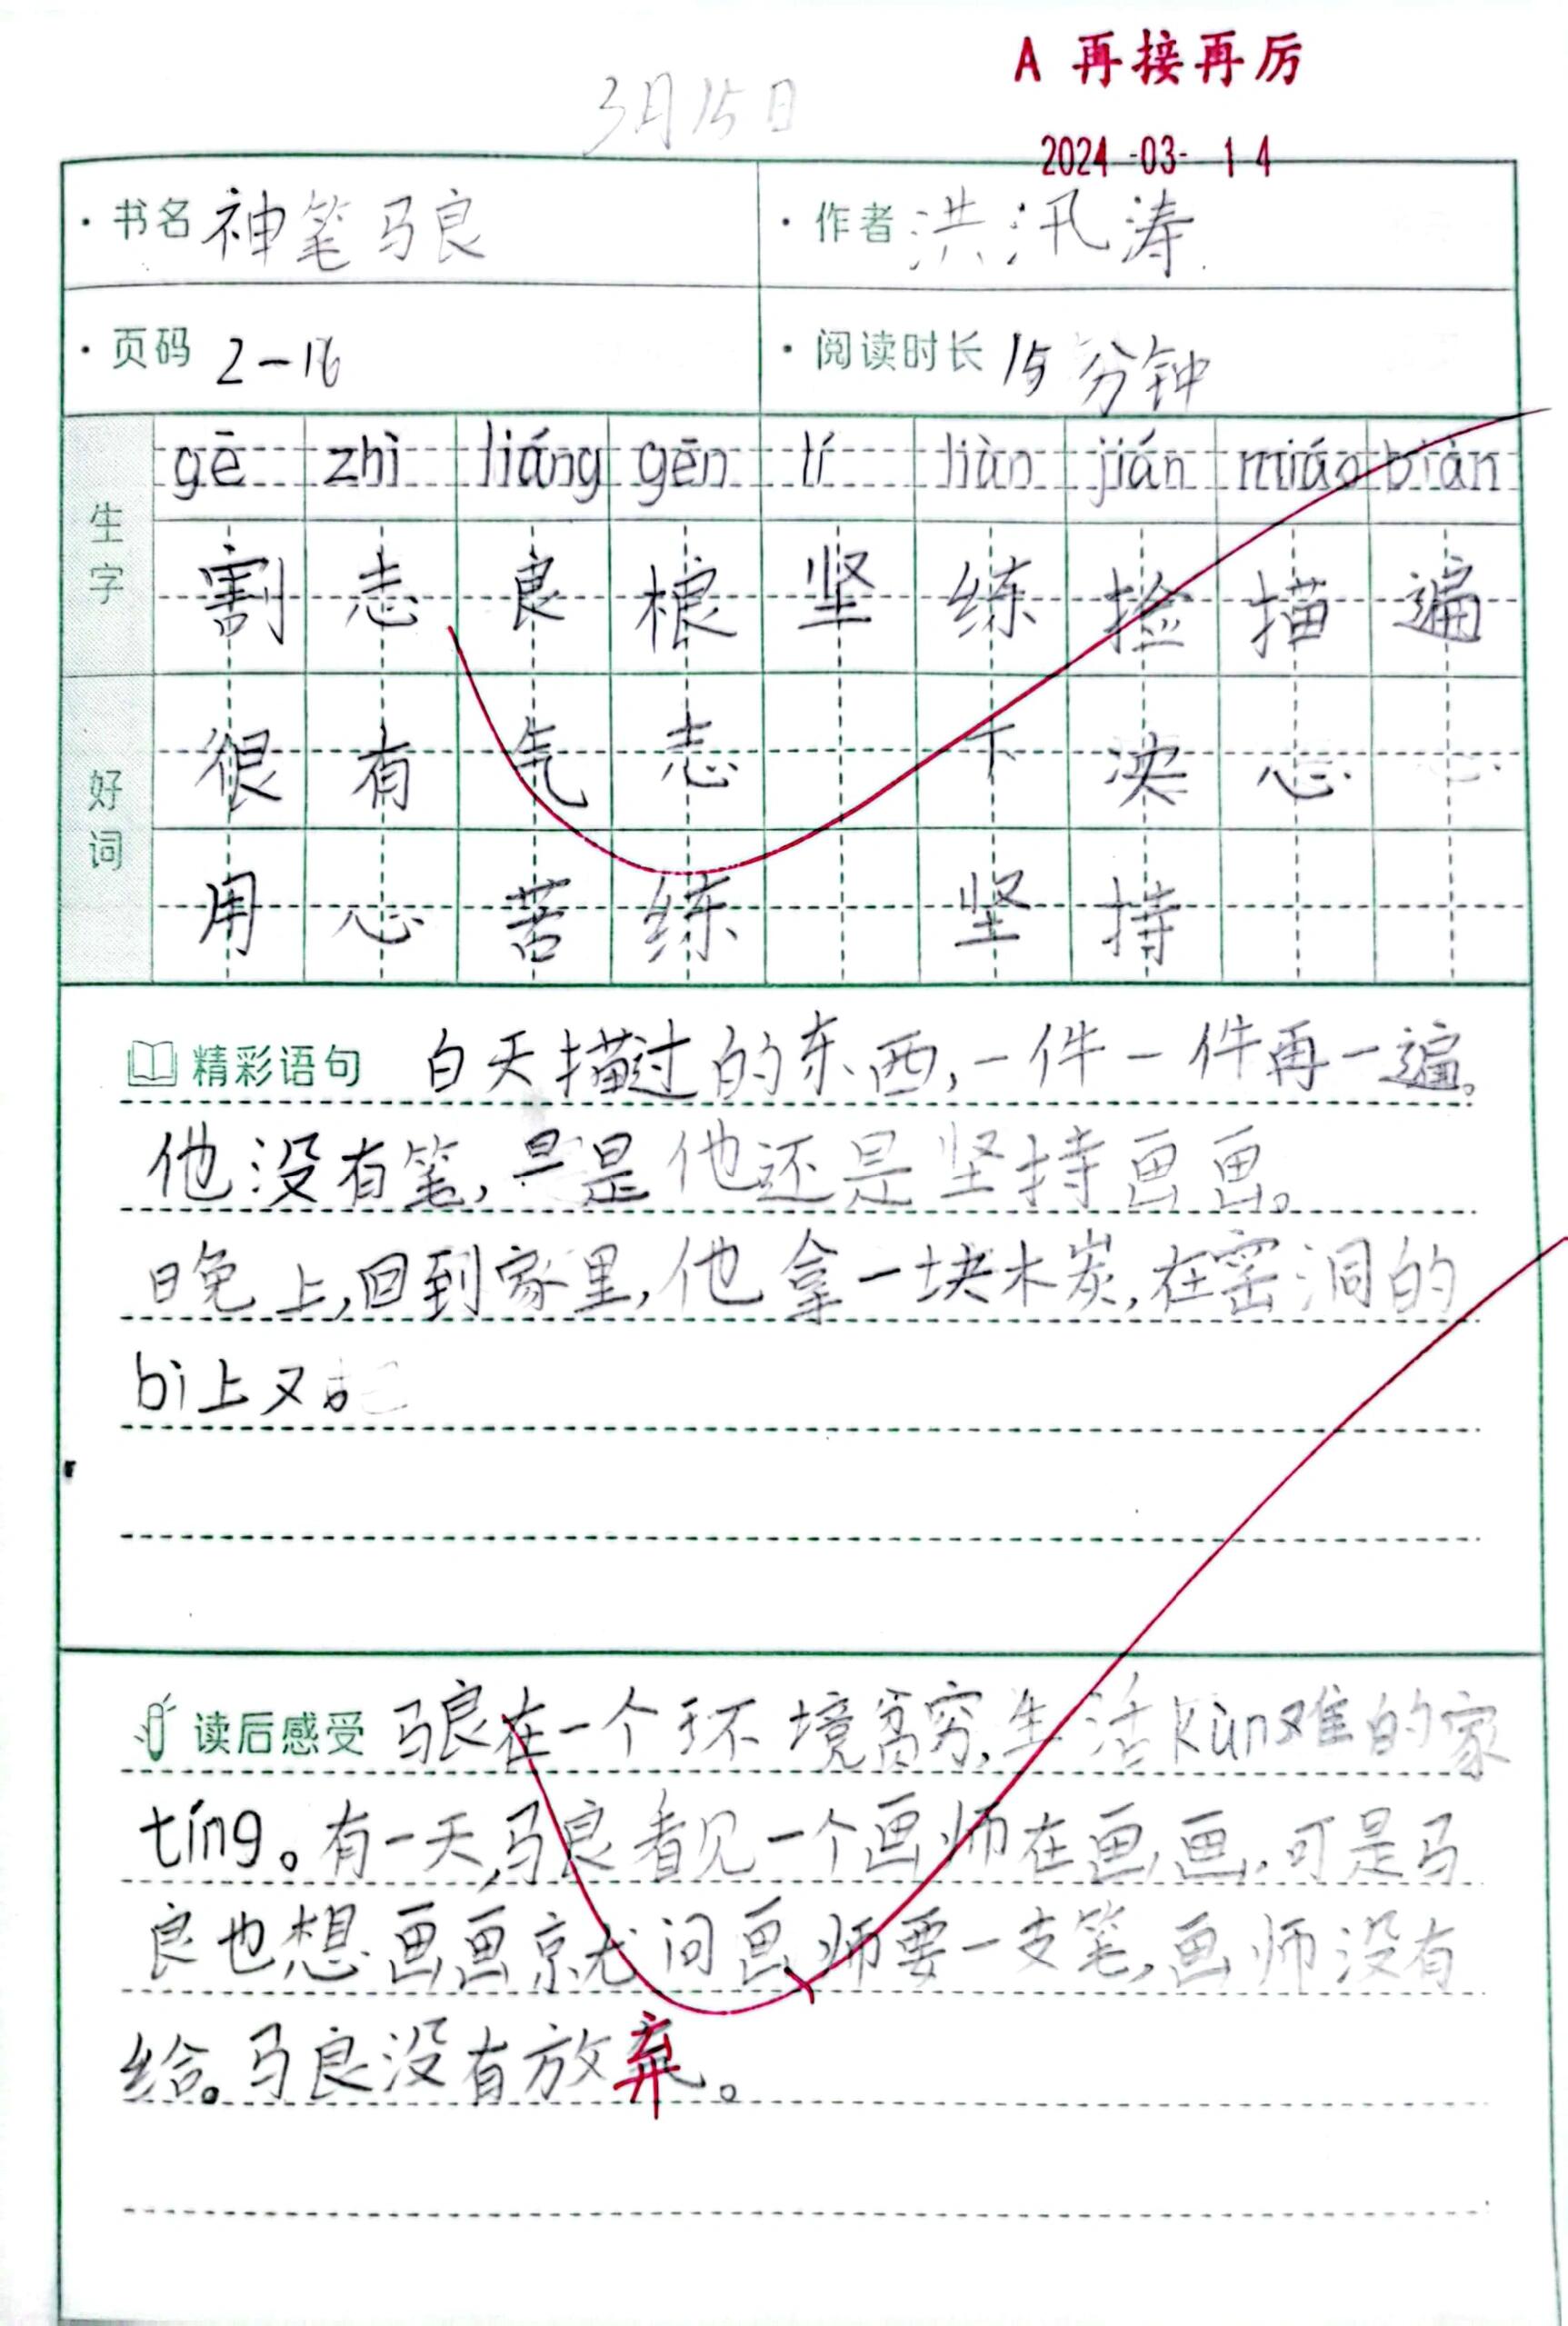 A 再接再厉
3月15日
2024-03-14
·书名 神笔马良 ·作者 洪汛涛
·页码 2-16 ·阅读时长 15分钟
gē zhì liáng gēn lí liàn jián miáo biàn
生字 割 志 良 根 坚 练 捡 描 遍
好词 很有气志 下决心
用心苦练 坚持
精彩语句 白天描过的东西,一件一件再一遍。
他没有笔,是他还是坚持画画。
晚上,回到家里,他拿一块木炭,在窑洞的
bì上又
读后感受 马良在一个环境贫穷,生活kùn难的家
tíng。有一天,马良看见一个画师在画画,可是马
良也想画画就问画师要一支笔,画师没有
给。马良没有放弃。